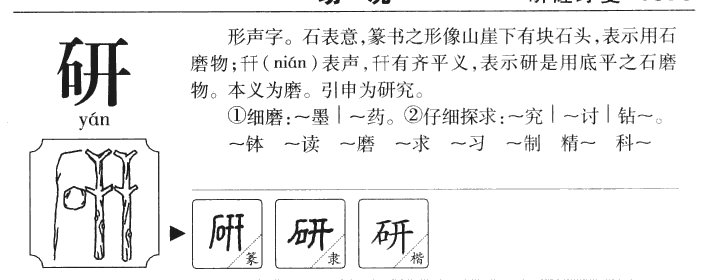 研
yán
形声字。石表意，篆书之形像山崖下有块石头，表示用石
磨物；幵（nián）表声，幵有齐平义，表示研是用底平之石磨
物。本义为磨。引申为研究。
①细磨：～墨｜～药。②仔细探求：～究｜～讨｜钻～。
～钵 ～读 ～磨 ～求 ～习 ～制 精～ 科～
研 篆 研 隶 研 楷